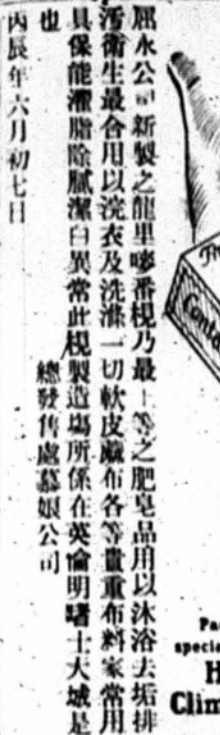 屈永公司新製之龍里嘜番梘乃最上等之肥皂品用以沐浴去垢排
汚衛生最合用以浣衣及洗滌一切軟皮蔴布各等貴重布料家常用
具保能灌脂除膩潔白異常此梘製造塲所係在英倫明曙士大城是
也
總發售處慕娘公司
丙辰年六月初七日
Pa
specia
H
Clim